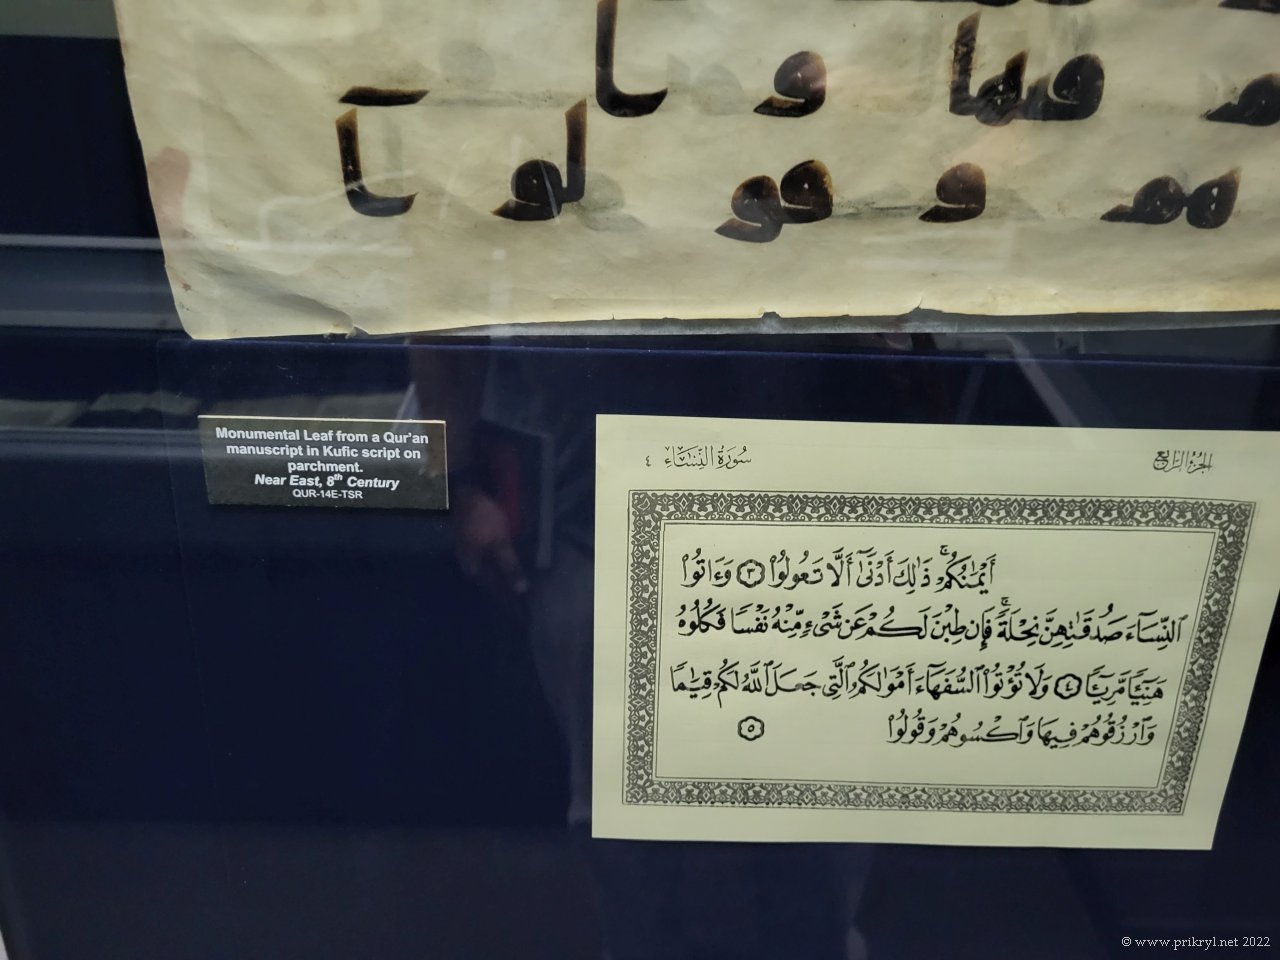 Monumental Leaf from a Qur'an
manuscript in Kufic script on
parchment.
Near East, 8th Century
QUR-14E-TSR
الجزء الرابع
سُورَةُ النِّسَاءِ ٤
أَيْمَٰنُكُمْ ۚ ذَٰلِكَ أَدْنَىٰٓ أَلَّا تَعُولُوا۟ ٣ وَءَاتُوا۟
ٱلنِّسَآءَ صَدُقَٰتِهِنَّ نِحْلَةً ۚ فَإِن طِبْنَ لَكُمْ عَن شَىْءٍ مِّنْهُ نَفْسًا فَكُلُوهُ
هَنِيٓـًٔا مَّرِيٓـًٔا ٤ وَلَا تُؤْتُوا۟ ٱلسُّفَهَآءَ أَمْوَٰلَكُمُ ٱلَّتِى جَعَلَ ٱللَّهُ لَكُمْ قِيَٰمًا
وَٱرْزُقُوهُمْ فِيهَا وَٱكْسُوهُمْ وَقُولُوا۟ ٥
© www.prikryl.net 2022